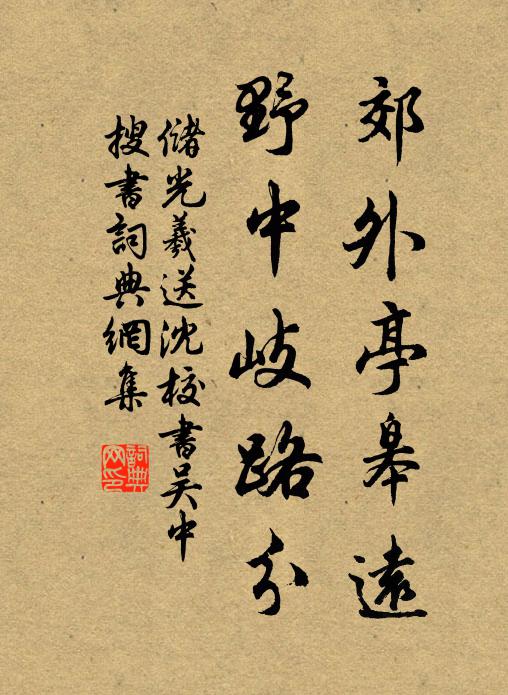 郊外亭皋遠
野中岐路分
儲光羲送沈校書吴中
搜書詞典網集
詞典网印